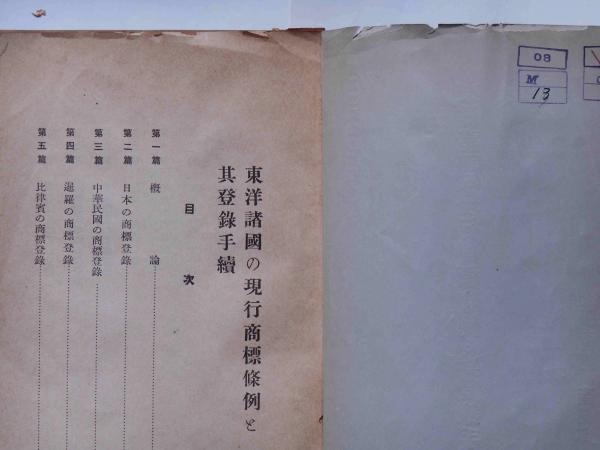 東洋諸國の現行商標條例と
其登錄手續
目次
第一篇 槪論
第二篇 日本の商標登錄
第三篇 中華民國の商標登錄
第四篇 暹羅の商標登錄
第五篇 比律賓の商標登錄
08
M
13